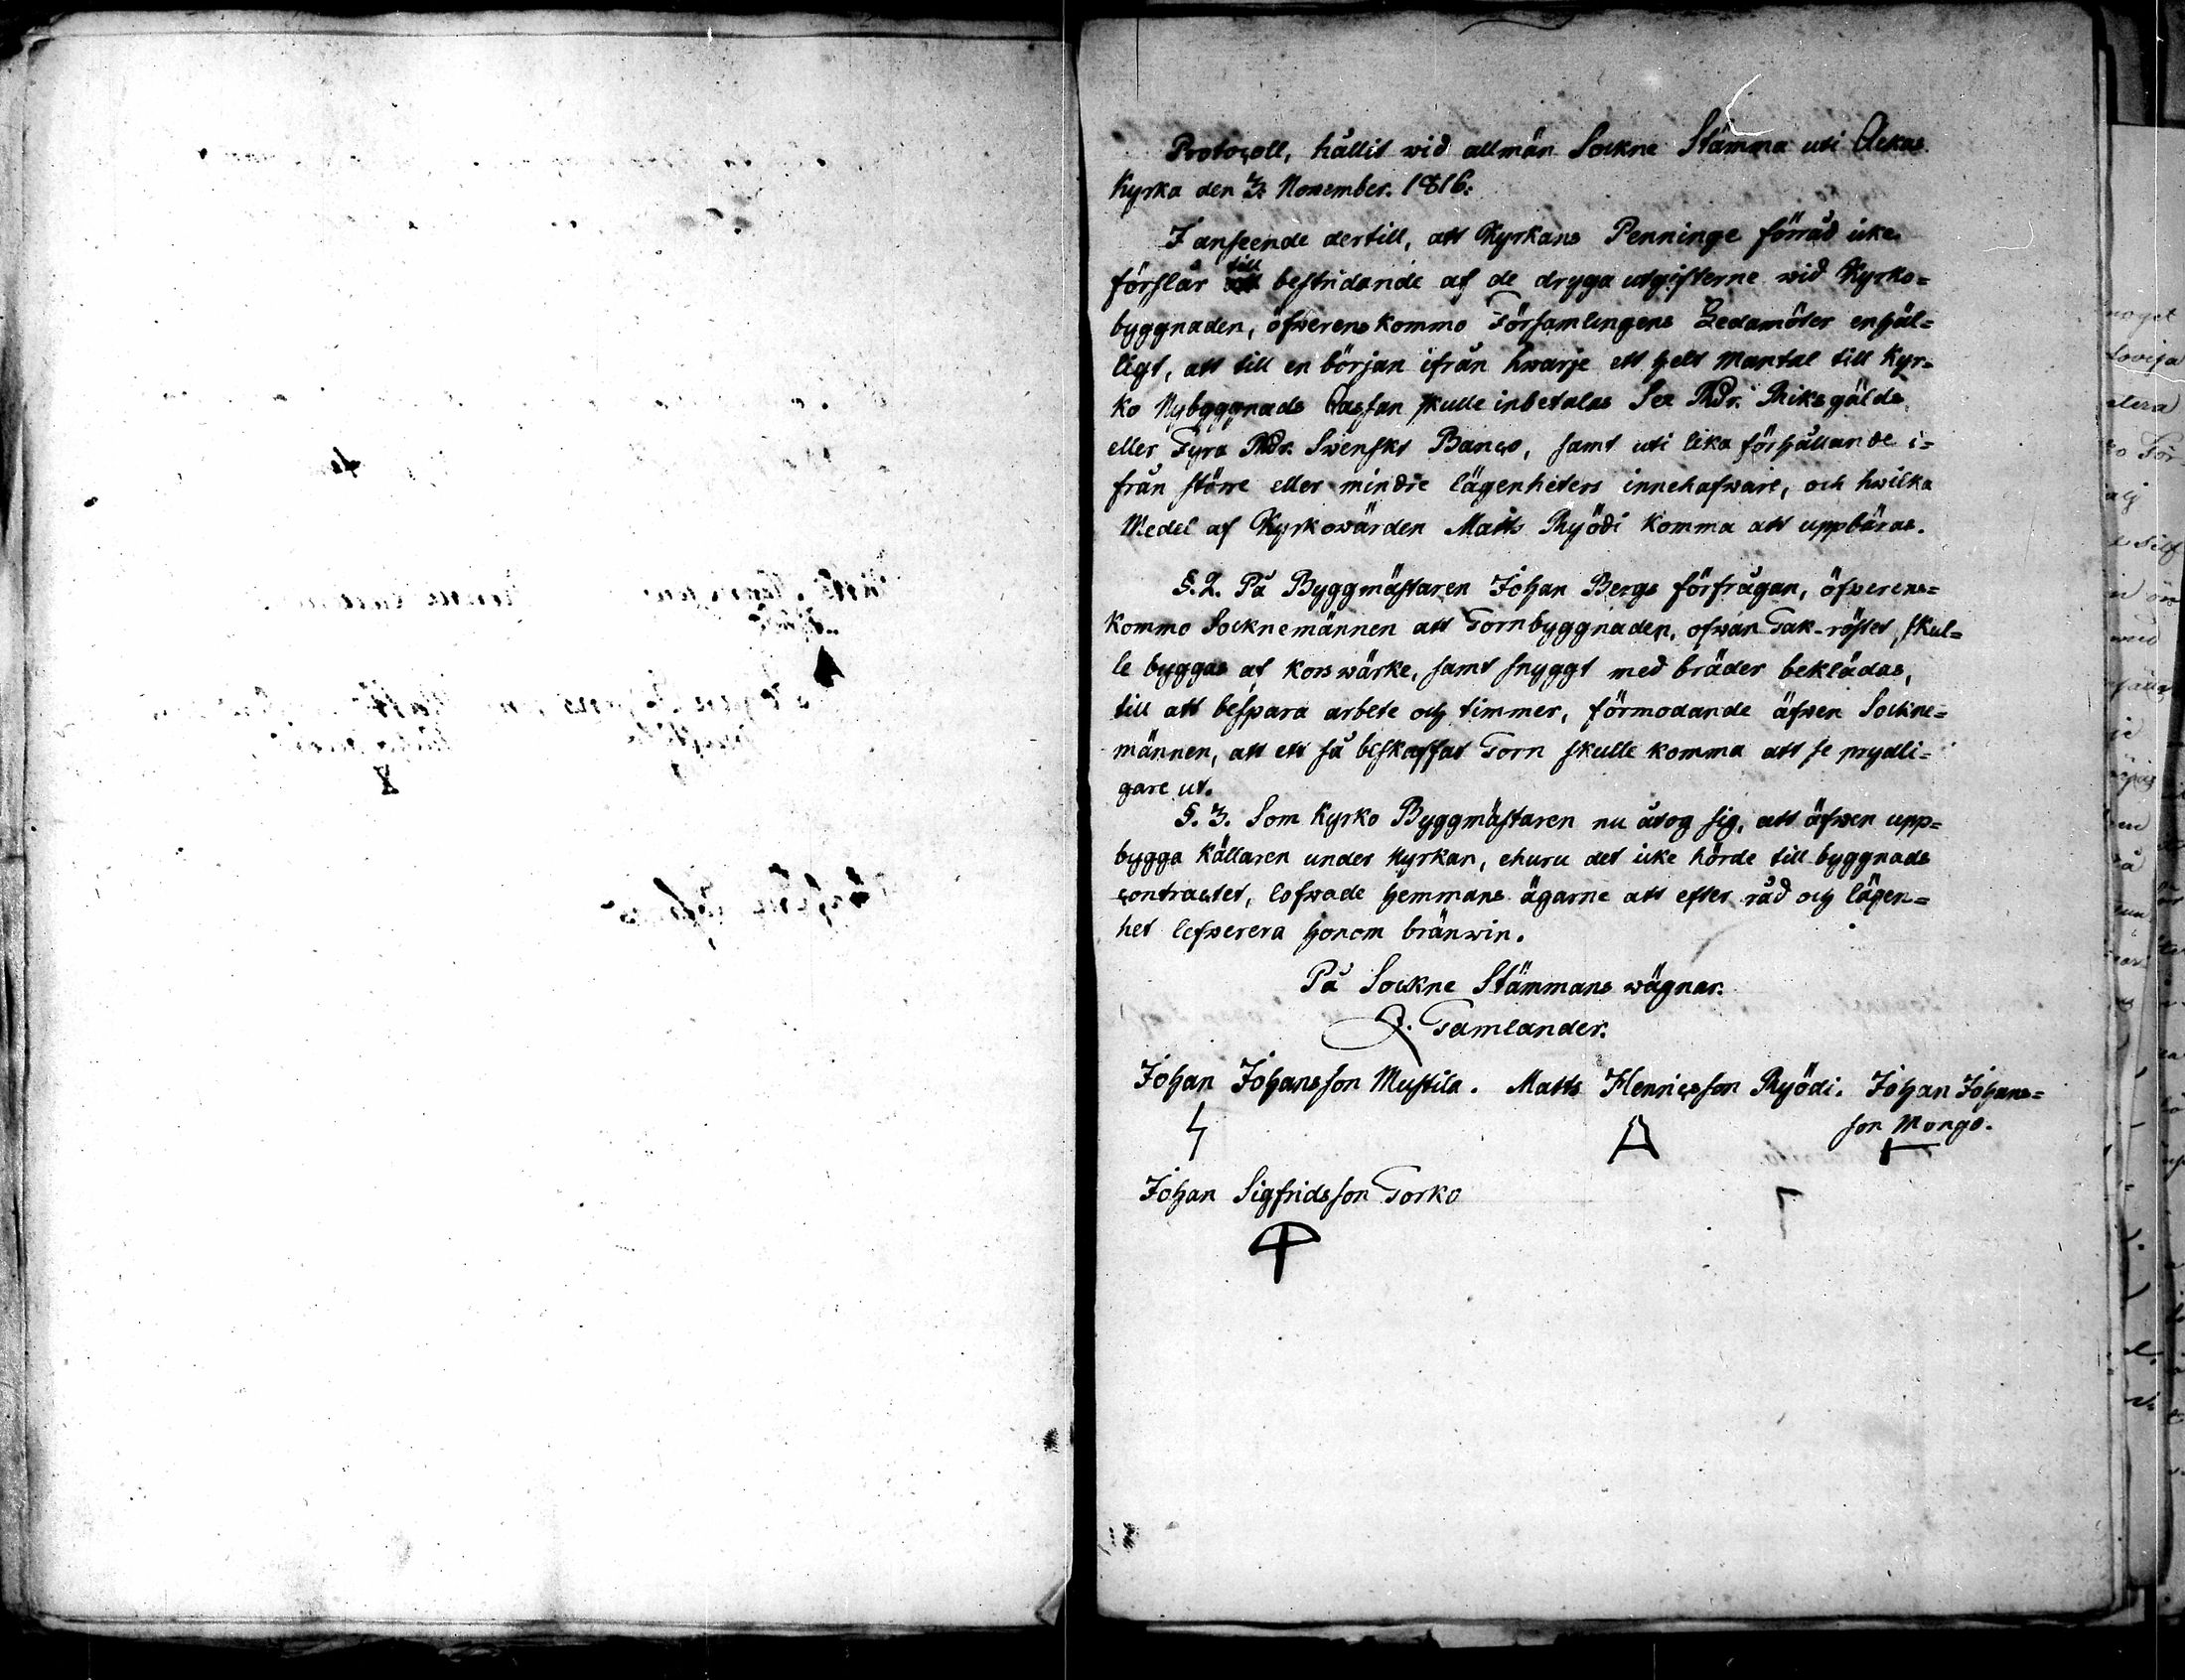 Protocoll, hållit wid allmän Sockne Stämma uti Ackas
Kyrka den 3. November. 1816.
I anseende dertill, att Kyrkans Penninge förråd icke
förslår till bestridande af de dryga utgifterne wid Kyrko=
byggnaden, öfwerenskommo Församlingens Ledamöter enhäl=
ligt, att till en början ifrån hwarje ett helt Mantal till Kyr=
ko Nybyggnads Cassan skulle inbetalas Sex Rdr. Riksgälds
eller Fyra Rdr. Swenskt Banco, samt uti lika förhållande i=
från större eller mindre lägenheters innehafware, och hwilka
Medel af Kyrkowärden Matts Ryödi komma att uppbäras.
§. 2. På Byggmästaren Johan Bergs förfrågan, öfwerens=
kommo Socknemännen att Tornbyggnaden, ofwan Tak-röstet, skul=
le byggas af korswärke, samt snyggt med bräder beklädas,
till att bespara arbete och timmer, förmodande äfwen Sockne=
männen, att ett så beskaffat Torn skulle komma att se prydli=
gare ut.
§. 3. Som Kyrko Byggmästaren nu åtog sig, att äfwen upp=
bygga källaren under Kyrkan, ehuru det icke hörde till byggnads
contractet, lofwade hemmans ägarne att efter råd och lägen=
het lefwerera honom bränwin.
På Sockne Stämmans wägnar.
Tamlander.
Johan Johansson Mustila. Matts Henricsson Ryödi. Johan Johans=
son Mongo.
Johan Sigfridsson Torko